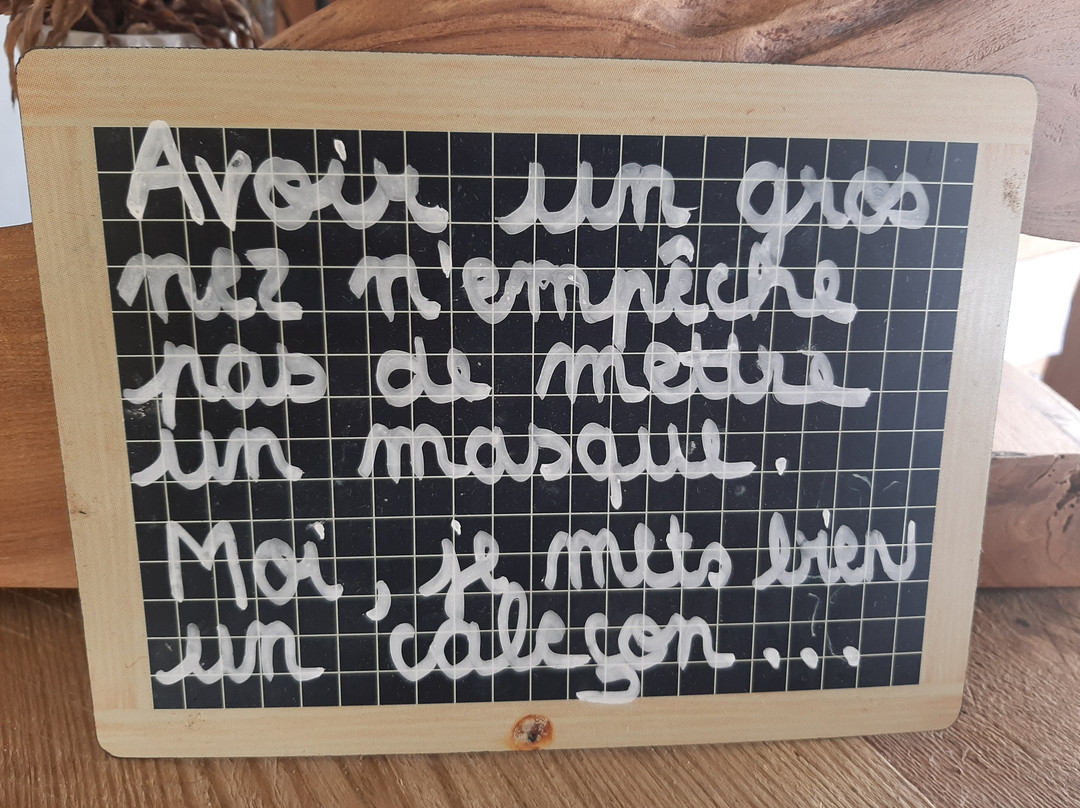 Avoir un gros
nez n'empêche
pas de mettre
un masque.
Moi, je mets bien
un caleçon...